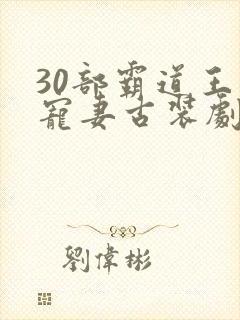 30部霸道王
寵妻古裝劇
劉偉彬